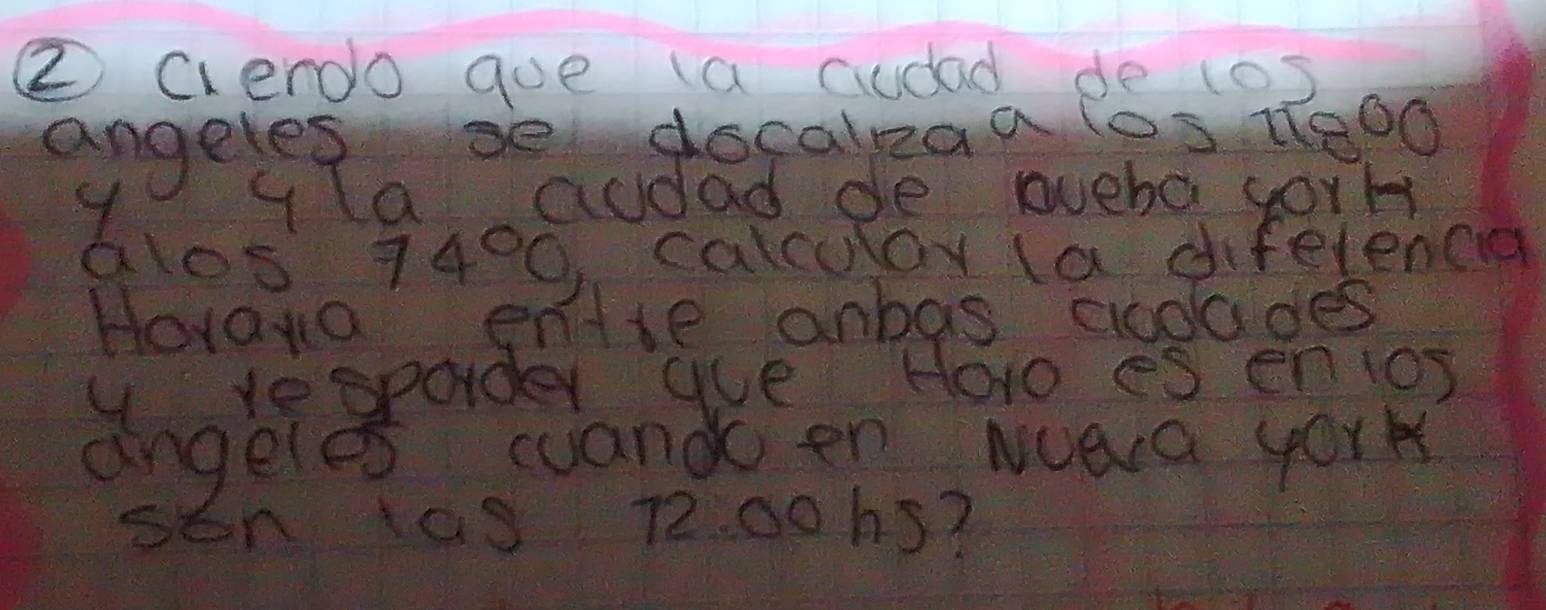 ② Ciendo que la ciudad de los
angeles se localiza a los 118°O
y y la ciudad de nueba york
alos 74°O, calcular la diferencia
Horaria entre anbas ciudades
y responder que Hora es en los
angeles cuando en Nueva york
son las 12:00 hs?